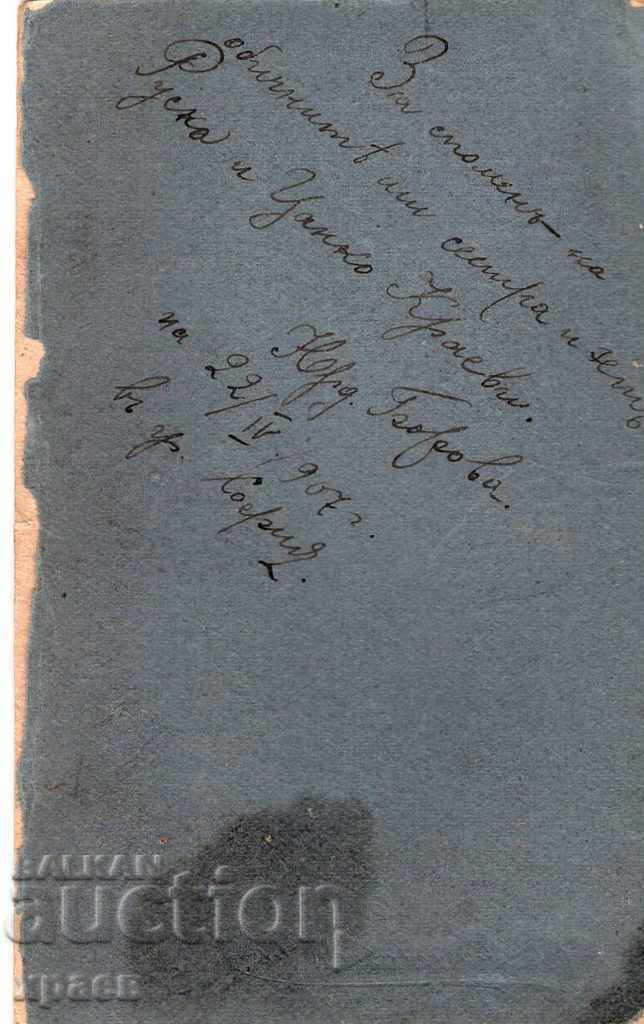 За споменъ на
обичнитѣ ми сестра и зетъ
Руска и Цанко Краеви.
Юрд. Борова.
на 22/IV 1907 г.
въ гр. София.
BALKAN
auction
краев